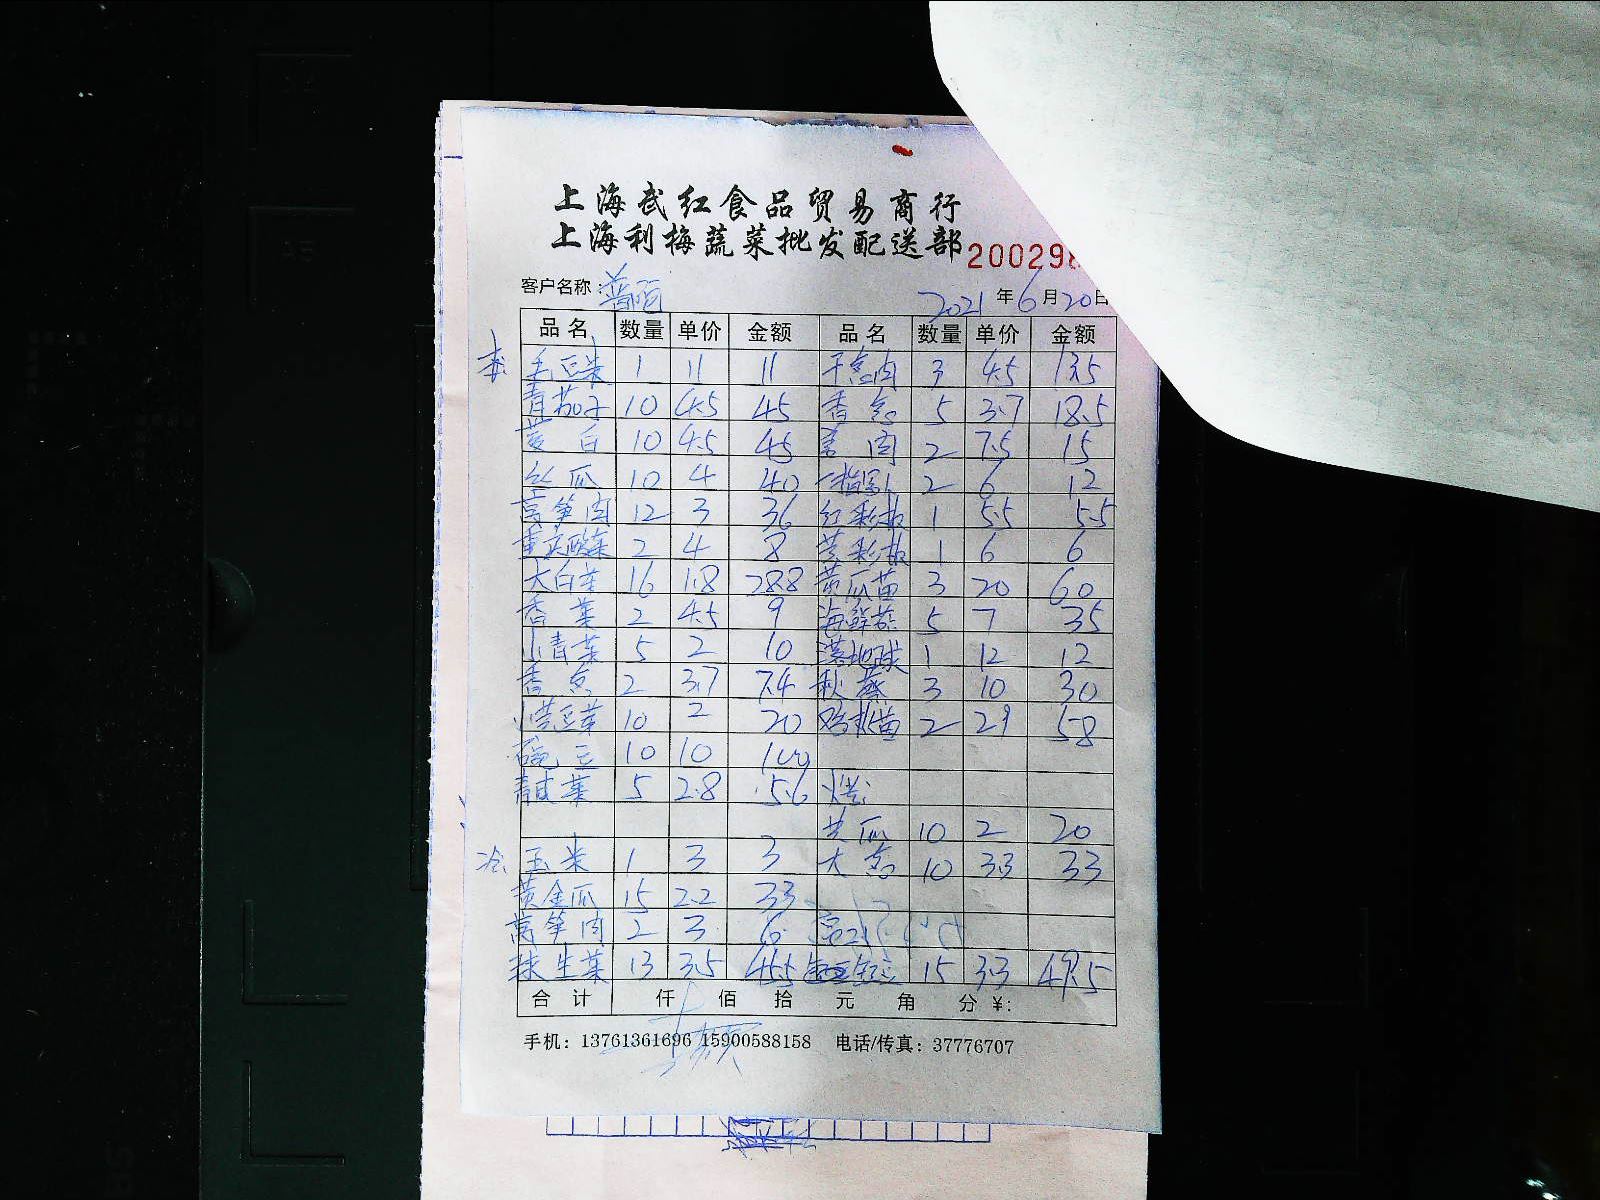 上海武红食品贸易商行
上海利梅蔬菜批发配送部 20029
客户名称： 2021年6月20日
品名 数量 单价 金额 品名 数量 单价 金额
毛豆米 1 11 11 干葱肉 3 4.5 13.5
青茄子 10 4.5 45 香葱 5 3.7 18.5
茭白 10 4.5 45 姜肉 2 7.5 15
丝瓜 10 4 40 2 6 12
莴笋肉 12 3 36 红彩椒 1 5.5 5.5
重庆酸菜 2 4 8 黄彩椒 1 6 6
大白菜 16 1.8 28.8 黄瓜苗 3 20 60
香菜 2 4.5 9 海鲜菇 5 7 35
小青菜 5 2 10 1 12 12
香葱 2 3.7 7.4 秋葵 3 10 30
10 2 20 2 29 58
豌豆 10 10 100
青咸菜 5 2.8 5.6
黄瓜 10 2 20
冷 玉米 1 3 3 大葱 10 3.3 33
黄金瓜 15 2.2 33
莴笋肉 2 3 6
球生菜 13 3.5 45.5 15 3.3 49.5
合计 仟 佰 拾 元 角 分 ¥:
手机：13761361696 15900588158 电话/传真：37776707